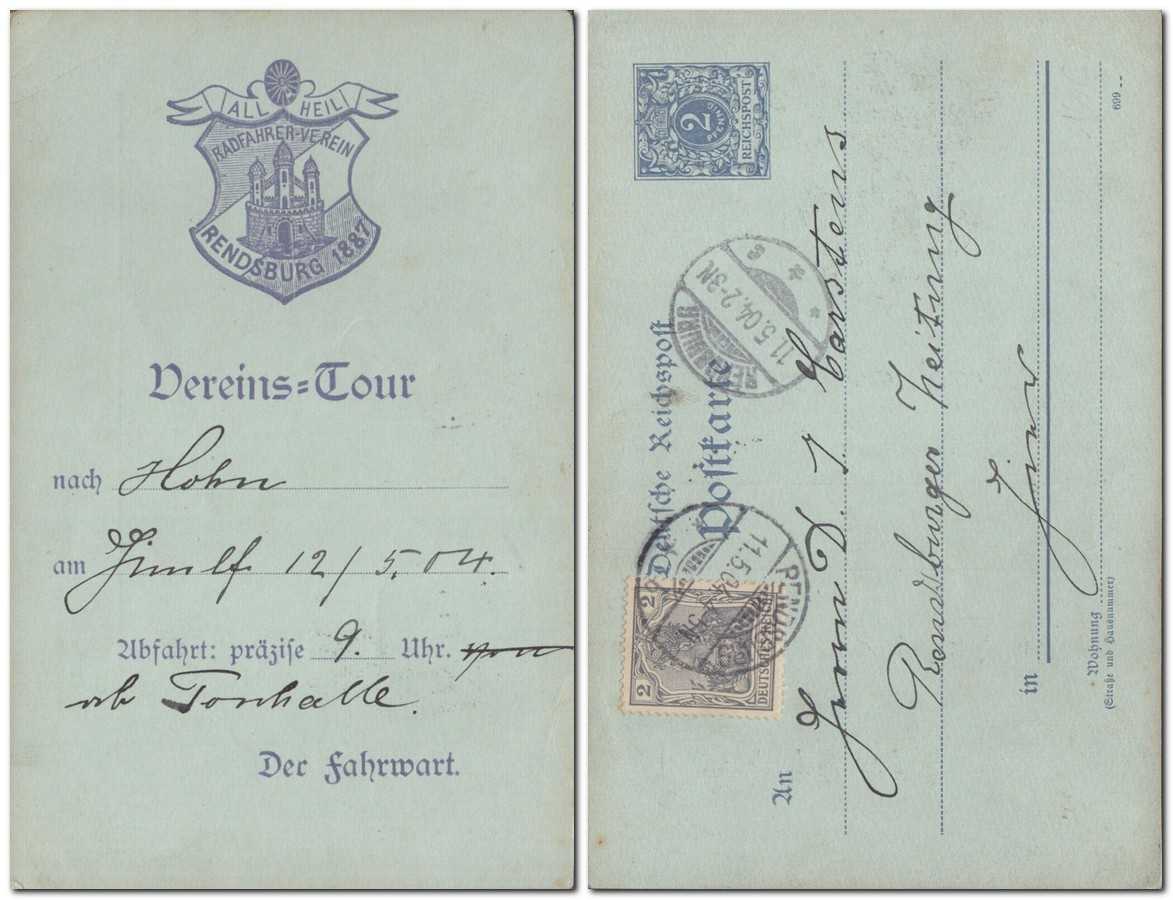 ALL HEIL
RADFAHRER-VEREIN
RENDSBURG 1887
Vereins=Tour
nach Hohn
am 12/5.04.
Abfahrt: präzise 9. Uhr. von
ab Tonhalle.
Der Fahrwart.
2
PFENNIG
REICHSPOST
Deutsche Reichspost
Postkarte
RENDSBURG
11.5.04.2-3N.
RENDSBURG
11.5.04
2 2
DEUTSCHES REICH
An Herrn D. J. Carstens
Rendsburger Zeitung
in Hier
Wohnung
(Straße und Hausnummer)
699